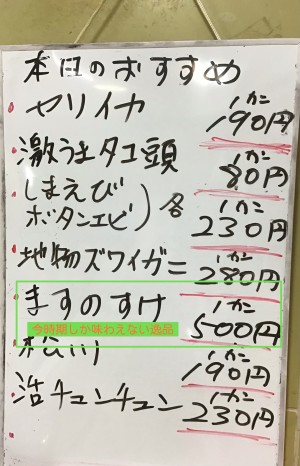 本日のおすすめ
ヤリイカ 1カン 190円
激うまタコ頭 1カン 80円
しまえび
ボタンエビ ) 各 1カン 230円
地物ズワイガニ 1カン 280円
ますのすけ 1カン 500円
今時期しか味わえない逸品
松川 190円
活チュンチュン 1カン 230円